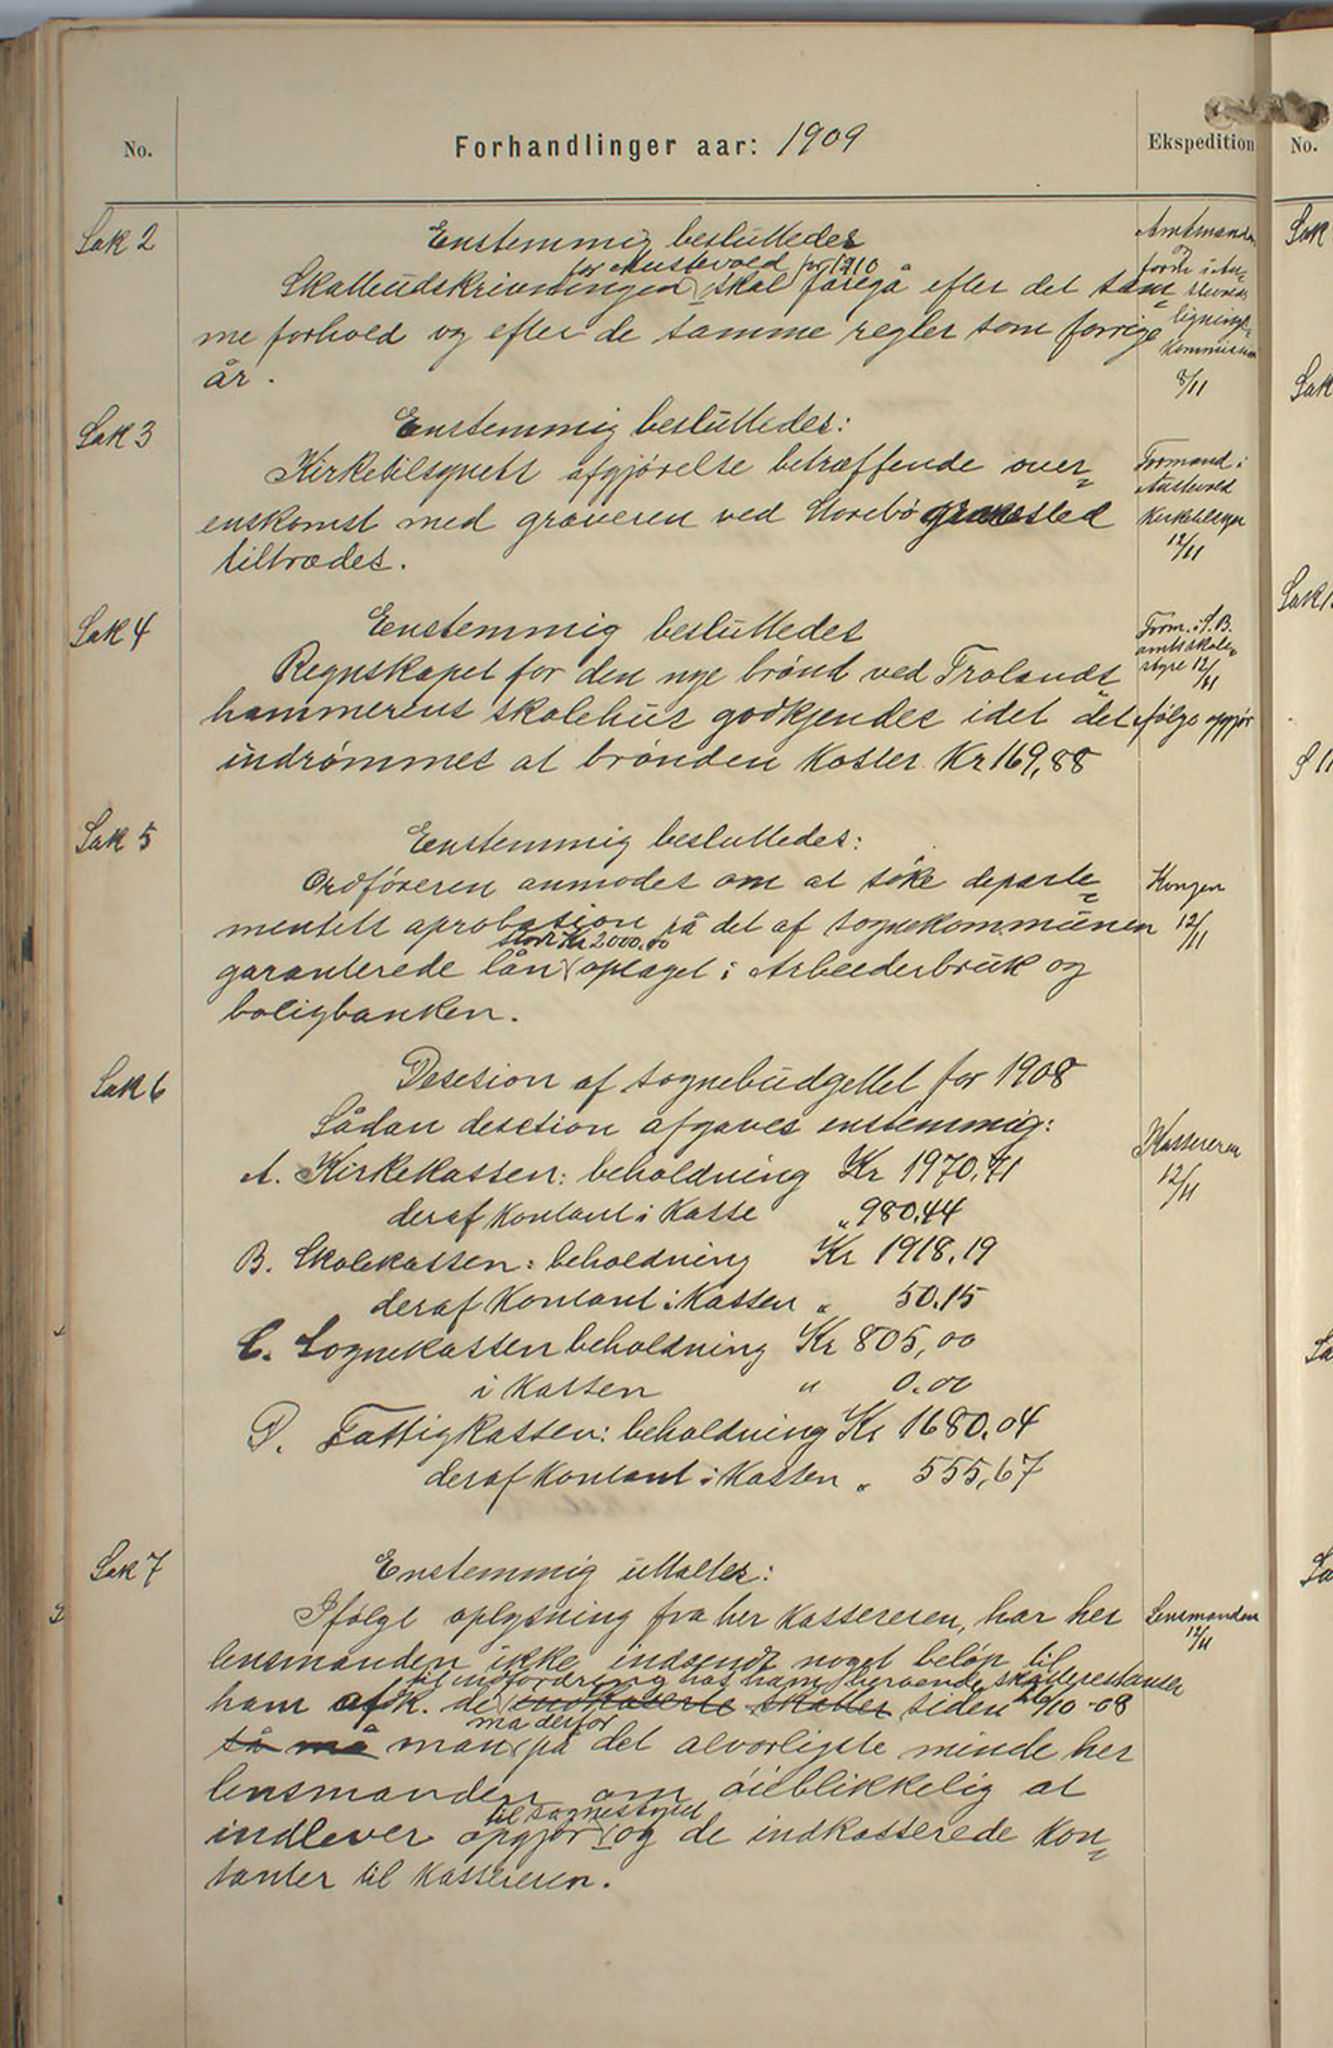 No.
Forhandlinger aar: 1909
Ekspedition
No.
Sak 2
Enstemmig besluttedes
for Austevold for 1910
Skatteudskrivningen skal foregå efter det sam=
me forhold og efter de samme regler som forrige
år.
Amtmanden
og
form i Au=
stevolds
lignings=
kommission
8/11
Sak 3
Enstemmig besluttedes:
Kirketilsynets afgjørelse betræffende over=
enskomst med graveren ved Storebø gravested
tiltrædes.
Formand i
Austevold
Kirketilsyn
12/11
Sak 4
Enstemmig besluttedes
Regnskapet for den nye brønd ved Trolands=
hammerens skolehus godkjendes idet det
indrømmes at brønden koster Kr 169,88
Form. i S.B.
amtsskole=
styre 12/11
følge opgjør
Sak 5
Enstemmig besluttedes:
Ordføreren anmodes om at søke departe=
mentets aprobation på det af sognekommunen
stort Kr 2000.00
garanterede lån optaget i Arbeiderbruk og
boligbanken.
Kongen
12/11
Sak 6
Desesion af sognebudgettet for 1908
Sådan desetion afgaves enstemmig:
A. Kirkekassen: beholdning Kr 1970.41
deraf kontant i kasse " 980.44
B. Skolekassen: beholdning Kr 1918.19
deraf kontant i kassen " 50.15
C. Sognekassen beholdning Kr 805,00
i kassen " 0.00
D. Fattigkassen: beholdning Kr 1680.04
deraf kontant i kassen " 555,67
Kassereren
12/11
Sak 7
Enstemmig uttaltes:
Ifølge oplysning fra her kassereren, har her
lensmanden ikke indsendt noget beløp til
til indfordring hos ham beroende skatterestanser
ham afk. de indkaserte skatter siden 10/10 - 08
må derfor
så må man på det alvorligste minde her
lensmanden om øieblikkelig at
til sognestyret
indlever opgjør og de indkasserede kon=
tanter til kassereren.
Lensmanden
12/11
Sak
Sak
Sak 1